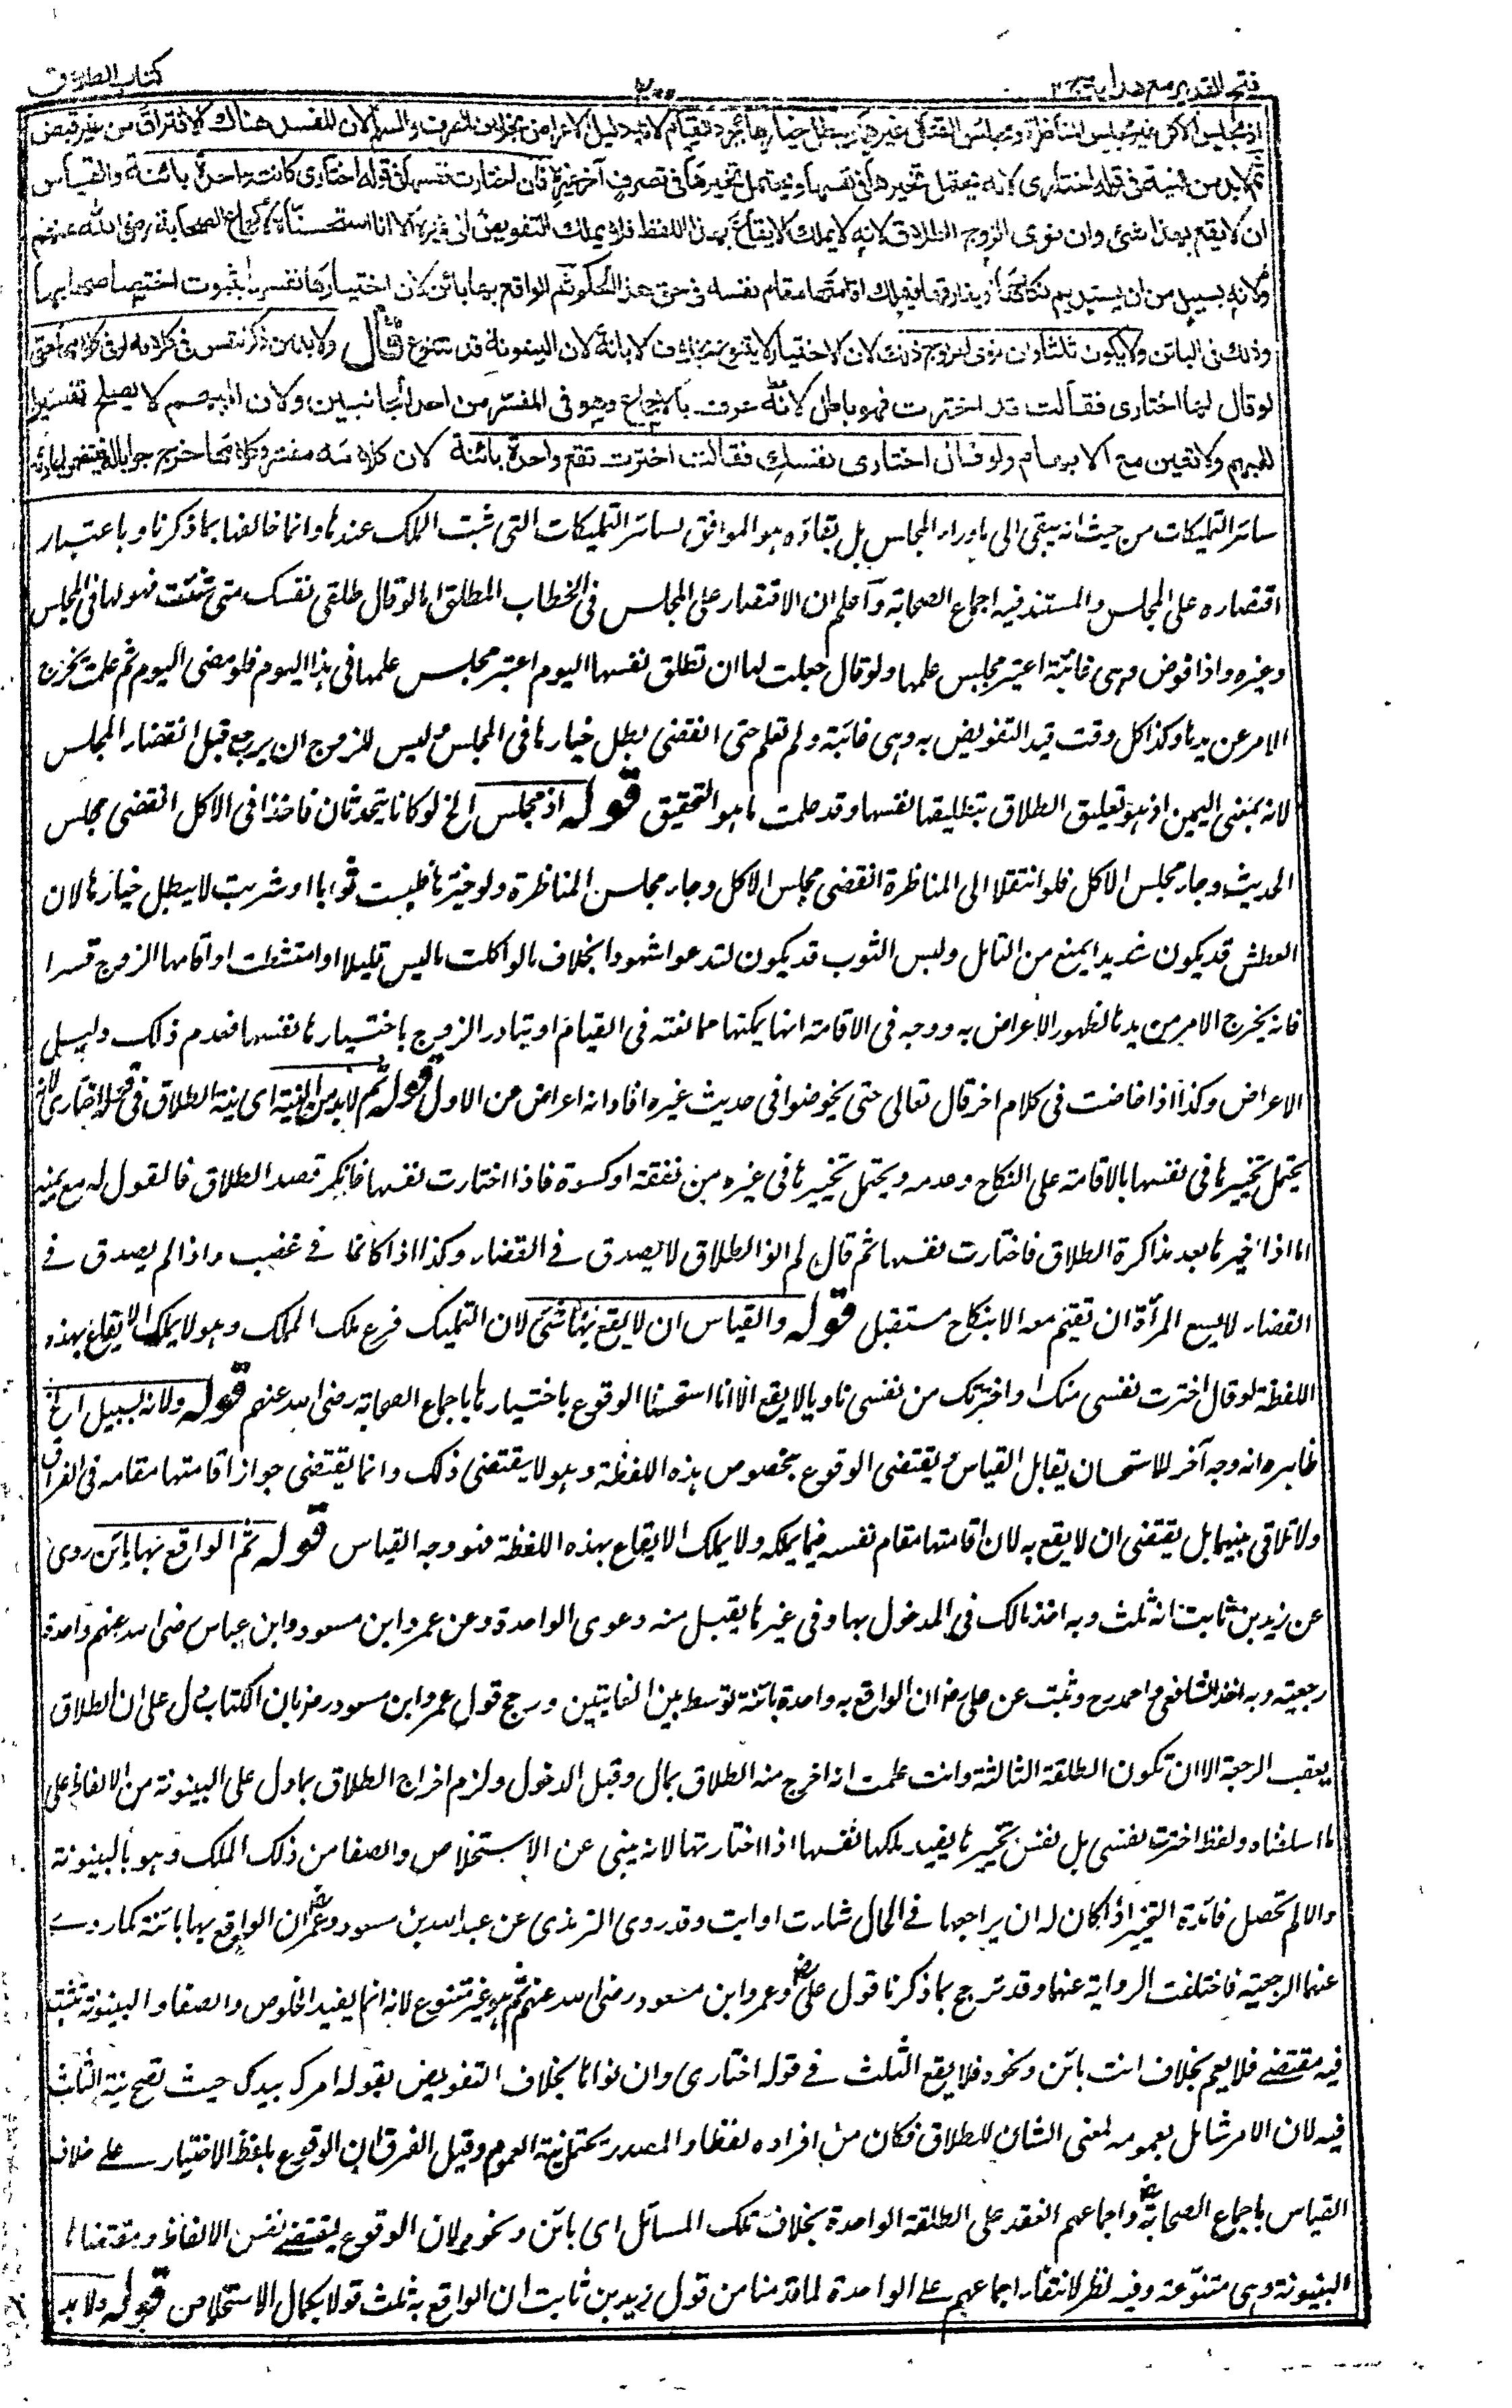 فتح القدير مع هداية ج ٢
٢٠٠
كتاب الطلاق
اذ مجلس الاكل غير مجلس المناظرة ومجلس القتال غيرهما ويبطل خيارها بمجرد القيام لانه دليل الاعراض بخلاف الصرف والسلم لان المفسد هناك الافتراق من غير قبض
ثم لابد من النية في قوله اختاري لانه يحتمل تخييرها في نفسها ويحتمل تخييرها في تصرف آخر غيره فان اختارت نفسها في قوله اختاري كانت واحدة بائنة والقياس
ان لا يقع بهذا شئ وان نوى الزوج الطلاق لانه لا يملك الايقاع بهذا اللفظ فلا يملك التفويض الى غيره الا انا استحسناه لاجماع الصحابة رضى الله عنهم
ولانه بسبيل من ان يستديم نكاحها او يفارقها فيملك اقامتها مقام نفسه في حق هذا الحكم ثم الواقع بها بائن لان اختيارها نفسها بثبوت اختصاصها بها
وذلك في البائن ولا يكون ثلثا وان نوى الزوج ذلك لان الاختيار لا يتنوع بخلاف الابانة لان البينونة قد تتنوع قال ولابد من ذكر النفس في كلامه او في كلامها حتى
لو قال لها اختاري فقالت قد اخترت فهو باطل لانه عرف بالاجماع وهو في المفسر من احد الجانبين ولان المبهم لا يصلح تفسيرا
للمبهم ولا تعين مع الابهام ولو قال اختاري نفسك فقالت اخترت تقع واحدة بائنة لان كلامه مفسر وكلامها خرج جوابا له فيتضمن اعادته
سائر التمليكات من حيث انه يبقى الى ما وراء المجلس بل بقاؤه هو الموافق لسائر التمليكات التي ثبت الملك عندها وانما خالفها بما ذكرنا وباعتبار
اقتصاره على المجلس والمستند فيه اجماع الصحابة واعلم ان الاقتصار على المجلس في الخطاب المطلق اما لو قال طلقي نفسك متى شئت فهو لها في المجلس
وغيره واذا فوض وهى غائبة اعتبر مجلس علمها ولو قال جعلت لها ان تطلق نفسها اليوم اعتبر مجلس علمها في هذا اليوم فلو مضى اليوم ثم علمت يخرج
الامر عن يدها وكذا كل وقت قيد التفويض به وهى غائبة ولم تعلم حتى انقضى بطل خيارها في المجلس وليس للزوج ان يرجع قبل انقضاء المجلس
لانه بمعنى اليمين اذ هو تعليق الطلاق بتطليقها نفسها وقد علمت ما هو التحقيق قوله اذ مجلس الخ لو كانا يتحدثان فاخذا في الاكل انقضى مجلس
الحديث وجاء مجلس الاكل فلو انتقلا الى المناظرة انقضى مجلس الاكل وجاء مجلس المناظرة ولو خيرها فلبست ثوبا او شربت لا يبطل خيارها لان
العطش قد يكون شديدا يمنع من التامل ولبس الثوب قد يكون لتدعو شهودا بخلاف ما لو اكلت ما ليس قليلا او امتشطت او اقامها الزوج قسرا
فانه يخرج الامر من يدها لظهور الاعراض به ووجه في الاقامة انها يمكنها ممانعته في القيام او تبادر الزوج باختيارها نفسها فعدم ذلك دليل
الاعراض وكذا اذا خاضت في كلام اخر قال تعالى حتى يخوضوا في حديث غيره افاد انه اعراض عن الاول قوله ثم لابد من النية اى نية الطلاق في قوله اختاري لانه
يحتمل تخييرها في نفسها بالاقامة على النكاح وعدمه ويحتمل تخييرها في غيره من نفقة او كسوة فاذا اختارت نفسها فانكر قصد الطلاق فالقول له مع يمينه
اما اذا خيرها بعد مذاكرة الطلاق فاختارت نفسها ثم قال لم انو الطلاق لا يصدق في القضاء وكذا اذا كانا في غضب واذا لم يصدق في
القضاء لا يسع المرأة ان تقيم معه الا بنكاح مستقبل قوله والقياس ان لا يقع بهذا شئ لان التمليك فرع ملك المملك وهو لا يملك الايقاع بهذه
اللفظة لو قال اخترت نفسي منك او اخترتك من نفسي ناويا لا يقع الا انا استحسنا الوقوع باختيارها باجماع الصحابة رضى الله عنهم قوله ولانه بسبيل الخ
ظاهره انه وجه آخر للاستحسان يقابل القياس ويقتضى الوقوع بخصوص هذه اللفظة وهو لا يقتضى ذلك وانما يقتضى جواز اقامتها مقامه في الفراق
ولا تلاقى بينهما بل يقتضى ان لا يقع به لان اقامتها مقام نفسه فيما يملكه ولا يملك الايقاع بهذه اللفظة فهو وجه القياس قوله ثم الواقع بها بائن روى
عن زيد بن ثابت انه ثلث وبه اخذ مالك في المدخول بها وفي غيرها يقبل منه دعوى الواحدة وعن عمر وابن مسعود وابن عباس رضى الله عنهم واحدة
رجعية وبه اخذ الشافعي واحمد رح وثبت عن علي رض ان الواقع به واحدة بائنة توسط بين الغايتين ورجح قول عمر وابن مسعود رض بان الكتاب دل على ان الطلاق
يعقب الرجعة الا ان تكون الطلقة الثالثة وانت علمت انه اخرج منه الطلاق بمال وقبل الدخول ولزم اخراج الطلاق بما دل على البينونة من الالفاظ على
ما اسلفناه ولفظ اخترت نفسي بل نفس تخييرها يفيد ملكها نفسها اذا اختارتها لانه ينبى عن الاستخلاص والصفا من ذلك الملك وهو بالبينونة
والا لم تحصل فائدة التخيير اذ كان له ان يراجعها في الحال شاءت او ابت وقد روى الترمذي عن عبد الله بن مسعود وعمر رض ان الواقع بها بائنة كما روى
عنهما الرجعية فاختلفت الرواية عنهما وقد ترجح بما ذكرنا قول علي رض وعمر وابن مسعود رضى الله عنهم ثم هو غير متنوع لانه انما يفيد الخلوص والصفاء والبينونة تثبت
فيه مقتضى فلا يعم بخلاف انت بائن ونحوه فلا يقع الثلث في قوله اختاري وان نواها بخلاف التفويض بقوله امرك بيدك حيث تصح نية الثلث
فيه لان الامر شامل بعمومه لمعنى الشان للطلاق فكان من افراده لفظا والمصدر يحتمل نية العموم وقيل الفرق ان الوقوع بلفظ الاختيار على خلاف
القياس باجماع الصحابة رض واجماعهم انعقد على الطلقة الواحدة بخلاف تلك المسائل اى بائن ونحوه لان الوقوع يقتضى نفس الالفاظ ومقتضاها
البينونة وهى متنوعة وفيه نظر لانتفاء اجماعهم على الواحدة لما قدمنا من قول زيد بن ثابت ان الواقع به ثلث قولا بكمال الاستخلاص قوله ولابد